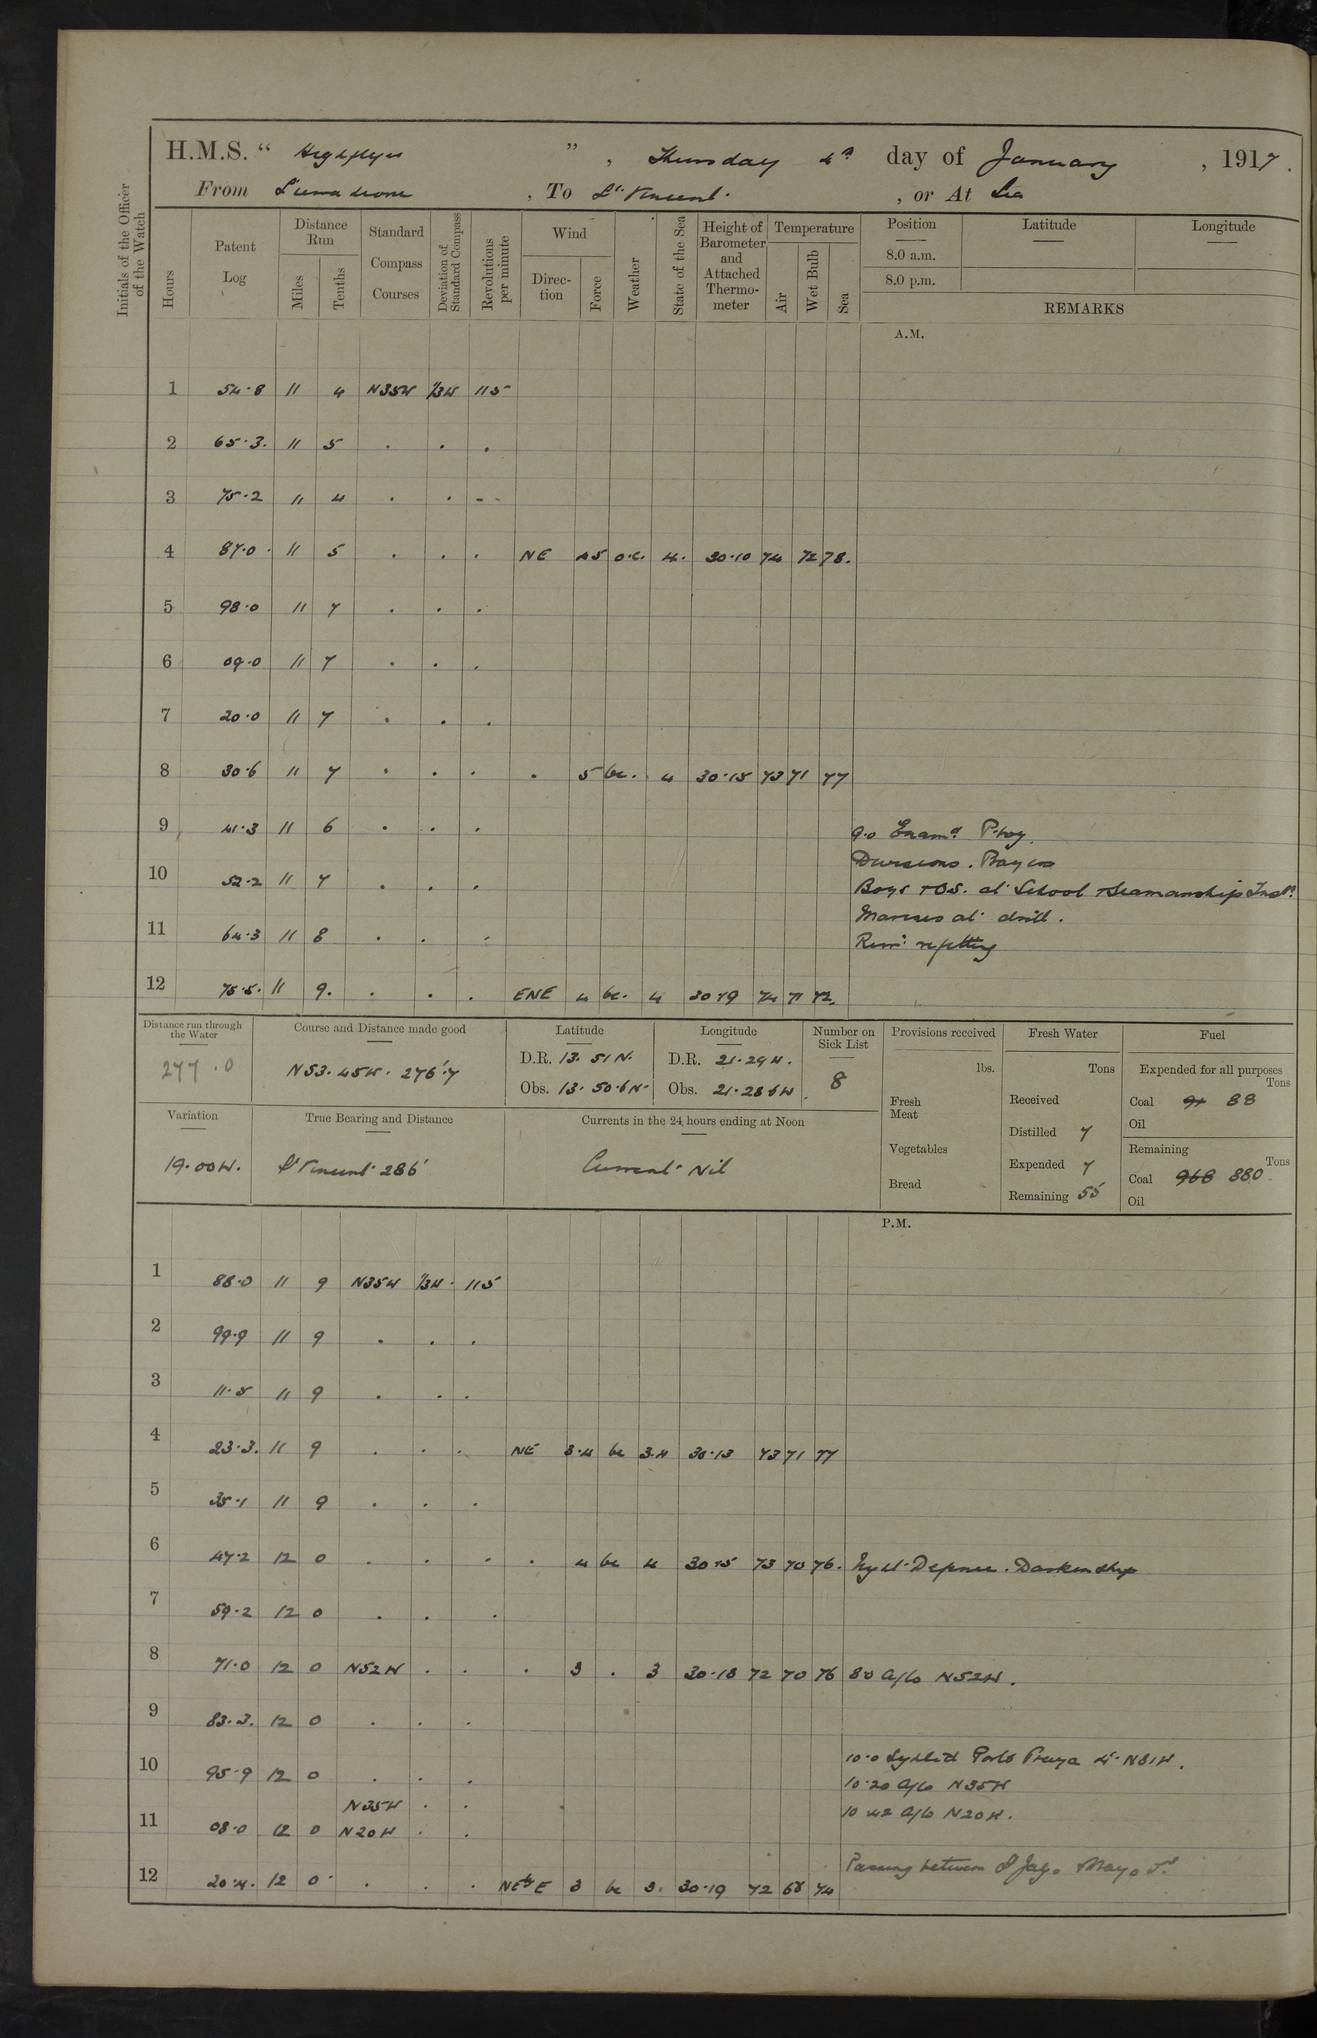 H.M.S. “ Highflyer ” , Thursday 4th day of January , 1917.
From Sierra Leone , To St. Vincent , or At Sea
Initials of the Officer of the Watch
Hours
Patent Log
Distance Run
Miles
Tenths
Standard Compass Courses
Deviation of Standard Compass
Revolutions per minute
Wind
Direction
Force
Weather
State of the Sea
Height of Barometer and Attached Thermometer
Temperature
Air
Wet Bulb
Sea
Position Latitude Longitude
8.0 a.m.
8.0 p.m.
REMARKS
A.M.
1 54.8 11 4 N35W 1/3W 115
2 65.3. 11 5 . . .
3 75.2 11 4 . . -
4 87.0 11 5 . . . NE 4.5 o.c. 4. 30.10 74 72 78.
5 98.0 11 7 . . .
6 09.0 11 7 . . .
7 20.0 11 7 . . .
8 30.6 11 7 . . . . 5 bc. 4 30.15 73 71 77
9 41.3 11 6 . . . 9.0 Examd
Divisions. Prayers
10 52.2 11 7 . . . Boys & OS. at School & Seamanship Instn.
Marines at drill.
11 64.3 11 8 . . . Remr. refitting
12 75.5. 11 9. . . . ENE 4 bc. 4 30.19 74 71 72.
Distance run through the Water
277.0
Course and Distance made good
N53.45W. 276'.7
Latitude
D.R. 13. 51 N.
Obs. 13. 50.6 N.
Longitude
D.R. 21.29 W.
Obs. 21.28.6 W.
Number on Sick List
8
Provisions received
lbs.
Fresh Meat
Vegetables
Bread
Fresh Water
Tons
Received
Distilled 7
Expended 7
Remaining 55
Fuel
Expended for all purposes
Tons
Coal 91 88
Oil
Remaining
Tons
Coal 968 880
Oil
Variation
19.00W.
True Bearing and Distance
St Vincent 286'
Currents in the 24 hours ending at Noon
Current Nil
P.M.
1 88.0 11 9 N35W 1/3W. 115
2 99.9 11 9 . . .
3 11.5 11 9 . . .
4 23.3. 11 9 . . . NE 3.4 bc 3.4 30.13 73 71 77
5 35.1 11 9 . . .
6 47.2 12 0 . . . . 4 bc 4 30.15 73 70 76. Night Defence. Darken ship
7 59.2 12 0 . . .
8 71.0 12 0 N52W . . . 3 . 3 30.18 72 70 76 8.0 a/c N52W.
9 83.3. 12 0 . . .
10.0 Sighted Porto Praya Lt. N81W.
10 95.9 12 0 . . . 10.20 a/c N35W
N35W . .
10.42 a/c N20W.
11 08.0 12 0 N20W . .
Passing between St Jago & Mayo Is.
12 20.4. 12 0 . . . NEbyE 3 bc 3. 30.19 72 68 74